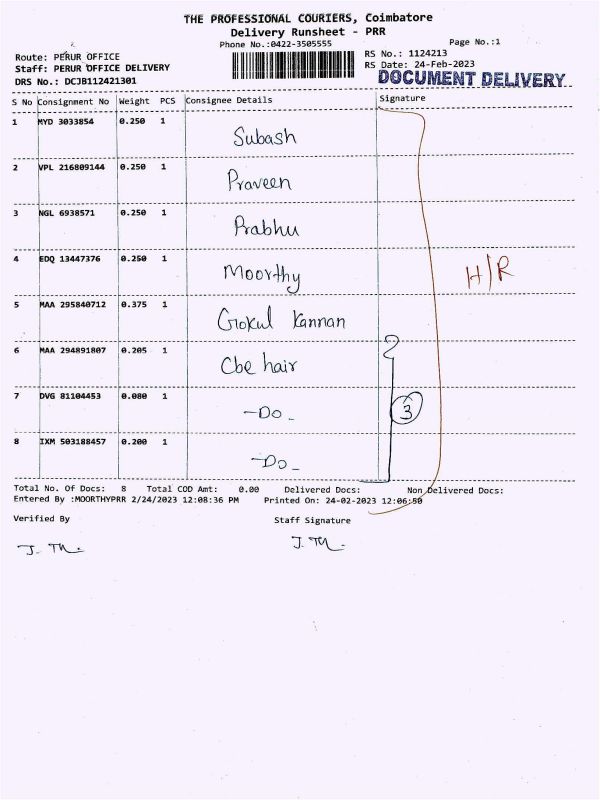 THE PROFESSIONAL COURIERS, Coimbatore
Delivery Runsheet - PRR
Phone No.:0422-3505555
Page No.:1
Route: PERUR OFFICE
RS No.: 1124213
Staff: PERUR OFFICE DELIVERY
RS Date: 24-Feb-2023
DRS No.: DCJB112421301
DOCUMENT DELIVERY
S No Consignment No Weight PCS Consignee Details Signature
1 MYD 3033854 0.250 1 Subash
2 VPL 216809144 0.250 1 Praveen
3 NGL 6938571 0.250 1 Prabhu
4 EDQ 13447376 0.250 1 Moorthy
H/R
5 MAA 295840712 0.375 1 Gokul Kannan
6 MAA 294891807 0.205 1 Cbe hair
7 DVG 81104453 0.080 1 -Do-
3
8 IXM 503188457 0.200 1 -Do-
Total No. Of Docs: 8 Total COD Amt: 0.00 Delivered Docs: Non Delivered Docs:
Entered By :MOORTHYPRR 2/24/2023 12:08:36 PM Printed On: 24-02-2023 12:06:50
Verified By Staff Signature